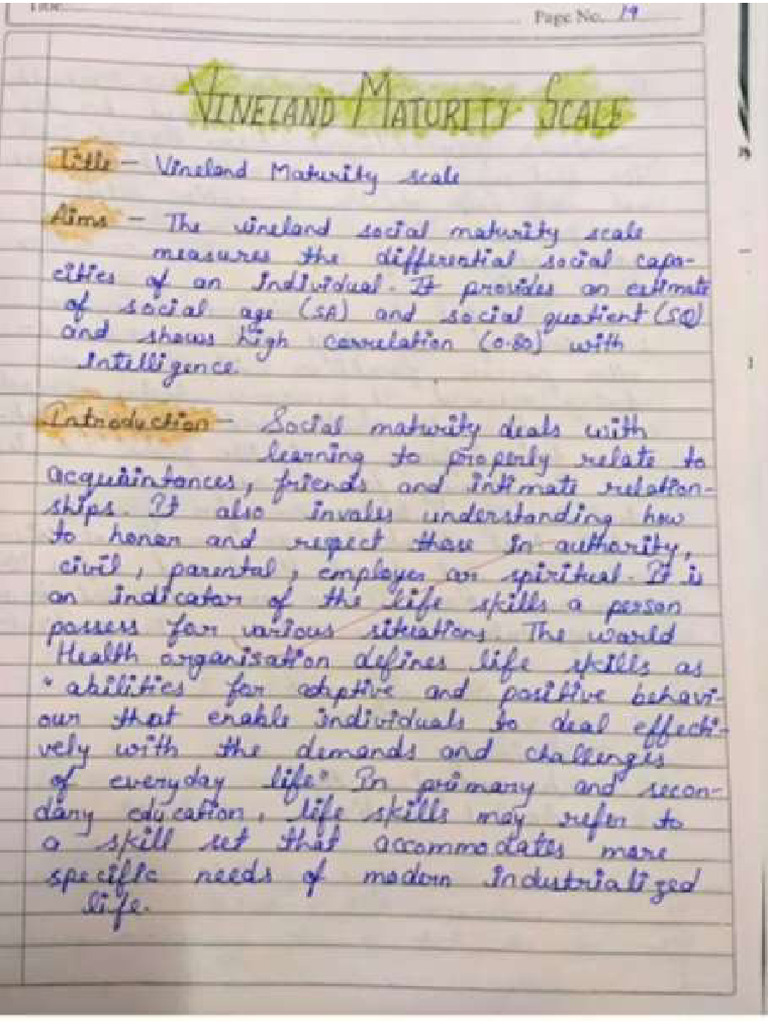 Title
Page No. 19
VINELAND MATURITY SCALE
Title - Vineland Maturity scale
Aims - The vineland social maturity scale
measures the differential social capa-
cities of an individual. It provides an estimate
of social age (SA) and social quotient (SQ)
and shows high correlation (0.80) with
intelligence.
Introduction - Social maturity deals with
learning to properly relate to
acquaintances, friends and intimate relation-
ships. It also involes understanding how
to honor and respect those in authority,
civil, parental, employer or spiritual. It is
an indicator of the life skills a person
possess for various situations. The world
Health organisation defines life skills as
"abilities for adaptive and positive behavi-
our that enable individuals to deal effecti-
vely with the demands and challenges
of everyday life" In primary and secon-
dary education, life skills may refer to
a skill set that accommodates more
specific needs of modern industrialized
life.